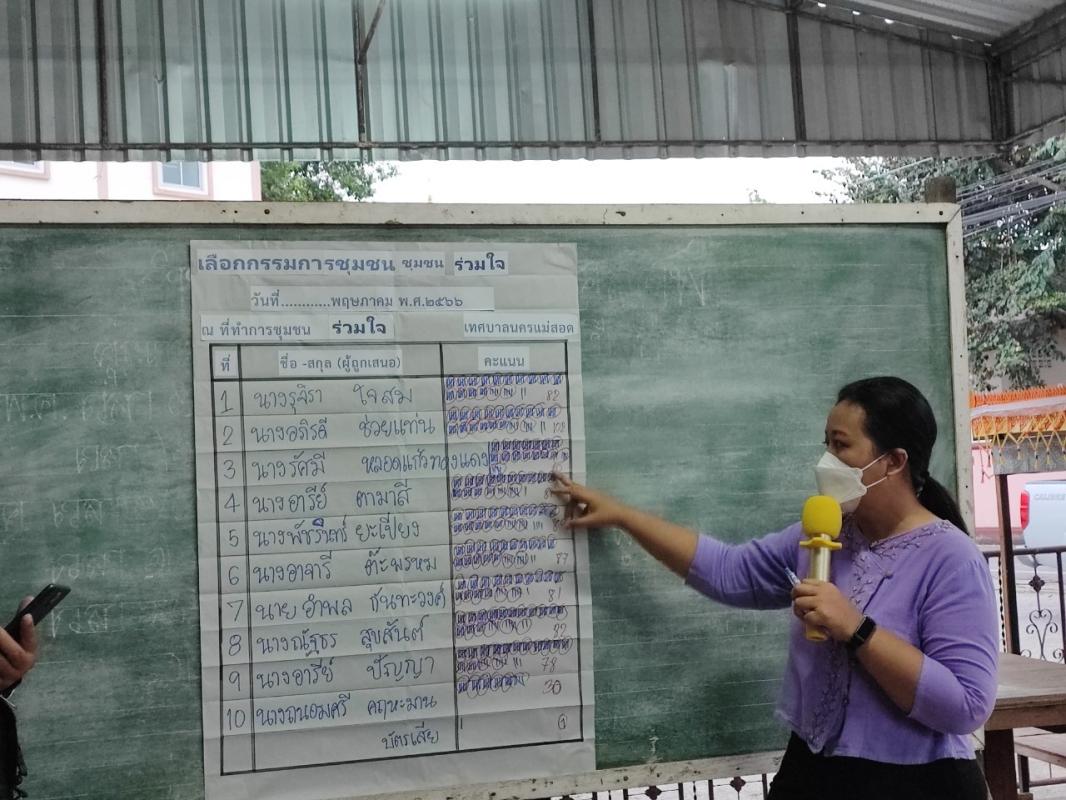 เลือกกรรมการชุมชน ชุมชน ร่วมใจ
วันที่............พฤษภาคม พ.ศ.๒๕๖๖
ณ ที่ทำการชุมชน ร่วมใจ เทศบาลนครแม่สอด
ที่ ชื่อ -สกุล (ผู้ถูกเสนอ) คะแนน
1 นางรุจิรา ใจสม 82
2 นางอภิรดี ช่วยแท่น
3 นางรัศมี หลอดแก้วทองแดง
4 นางอารีย์ ตามาสี
5 นางพัชรินทร์ ยะเปียง
6 นางอาจารี ต๊ะพรหม 77
7 นายอำพล ขันทะวงค์ 81
8 นางณัฐธร สุขสันต์
9 นางอารีย์ ปัญญา 78
10 นางถนอมศรี คฤหะมาน 30
บัตรเสีย